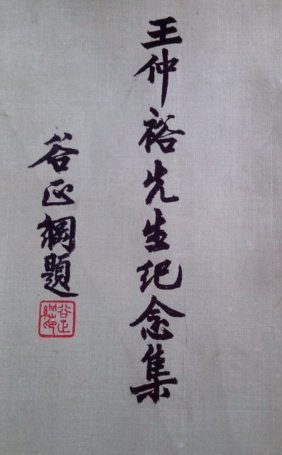 王仲裕先生紀念集
谷正綱題
谷正綱印